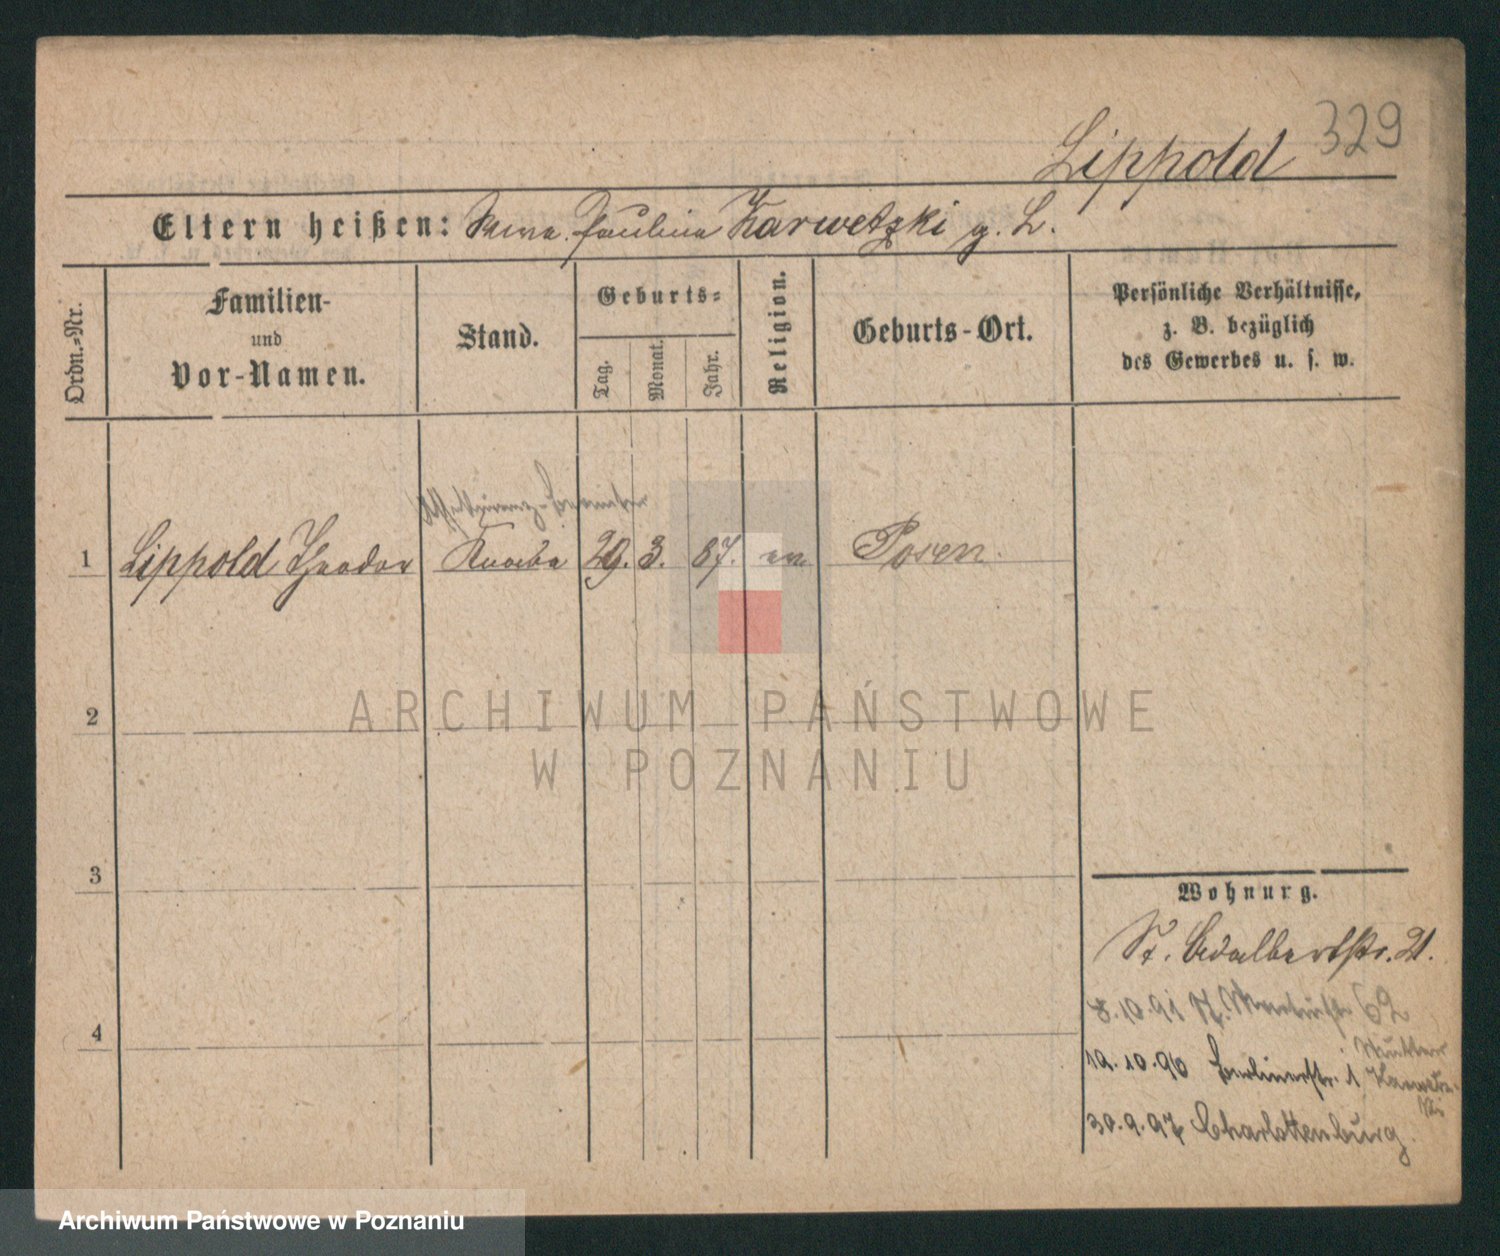 329
Lippold
Eltern heißen: Paulina Karwetzki g. L.
Ordn.-Nr.
Familien-
und
Vor-Namen.
Stand.
Geburts-
Tag.
Monat.
Jahr.
Religion.
Geburts-Ort.
Persönliche Verhältnisse,
z. B. bezüglich
des Gewerbes u. s. w.
1
Lippold Theodor Knabe 29. 3. 87. ev Posen.
2
3
4
Wohnung.
St. Adalbertstr. 21.
8.10.91 62
19.10.96 Berlinerstr. 1 Mutter
Karwetz-
ki
30.9.97 Charlottenburg.
ARCHIWUM PAŃSTWOWE
W POZNANIU
Archiwum Państwowe w Poznaniu